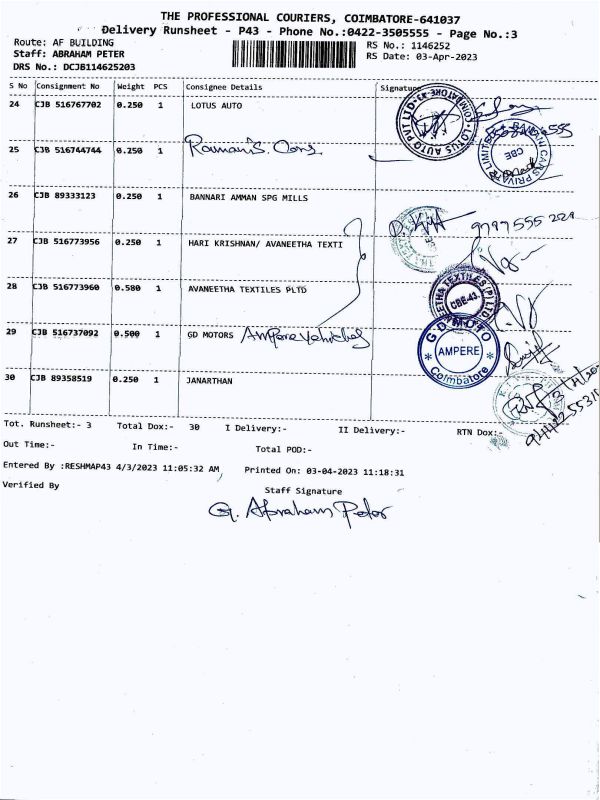 THE PROFESSIONAL COURIERS, COIMBATORE-641037
Delivery Runsheet - P43 - Phone No.:0422-3505555 - Page No.:3
Route: AF BUILDING
RS No.: 1146252
Staff: ABRAHAM PETER
RS Date: 03-Apr-2023
DRS No.: DCJB114625203
S No Consignment No Weight PCS Consignee Details Signature
24 CJB 516767702 0.250 1 LOTUS AUTO
LOTUS AUTO PVT LTD COIMBATORE-43
25 CJB 516744744 0.250 1 Ramani S. Cars
CARS PRIVATE LIMITED CBE
26 CJB 89333123 0.250 1 BANNARI AMMAN SPG MILLS
9797 555 221
27 CJB 516773956 0.250 1 HARI KRISHNAN/ AVANEETHA TEXTI
28 CJB 516773960 0.580 1 AVANEETHA TEXTILES PLTD
EETHA TEXTILES (P) LTD CBE-43.
29 CJB 516737092 0.500 1 GD MOTORS Ampere Vehicles
G.D. MOTO AMPERE Coimbatore
30 CJB 89358519 0.250 1 JANARTHAN
Tot. Runsheet:- 3 Total Dox:- 30 I Delivery:- II Delivery:- RTN Dox:-
Out Time:- In Time:- Total POD:-
Entered By :RESHMAP43 4/3/2023 11:05:32 AM Printed On: 03-04-2023 11:18:31
Verified By
Staff Signature
G. Abraham Peter